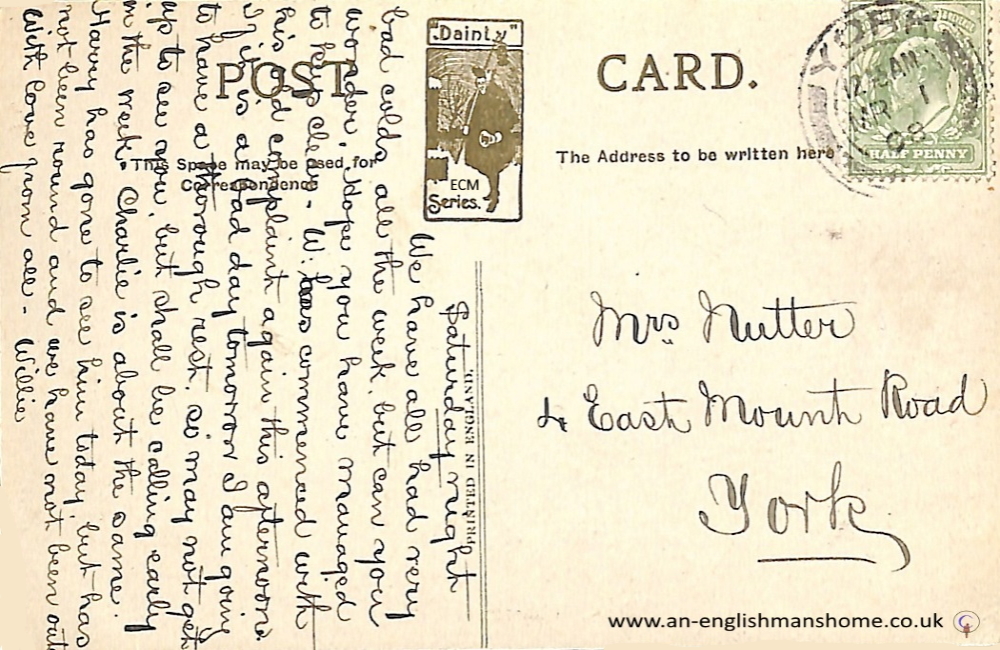 POST CARD.
"Dainty"
ECM
Series.
This Space may be used for
Correspondence
The Address to be written here
PRINTED IN ENGLAND.
YORK
12.15AM
1
08
HALF PENNY
Saturday night
We have all had very
bad colds all the week but can you
wonder. Hope you have managed
to keep clear. W. has commenced with
his old complaint again this afternoon.
If it is a bad day tomorrow I am going
to have a thorough rest, so may not get
up to see you, but shall be calling early
in the week. Charlie is about the same.
Harry has gone to see him today, but has
not been round and we have not been out
With love from all - Willie
Mrs Nutter
4 East Mount Road
York
www.an-englishmanshome.co.uk